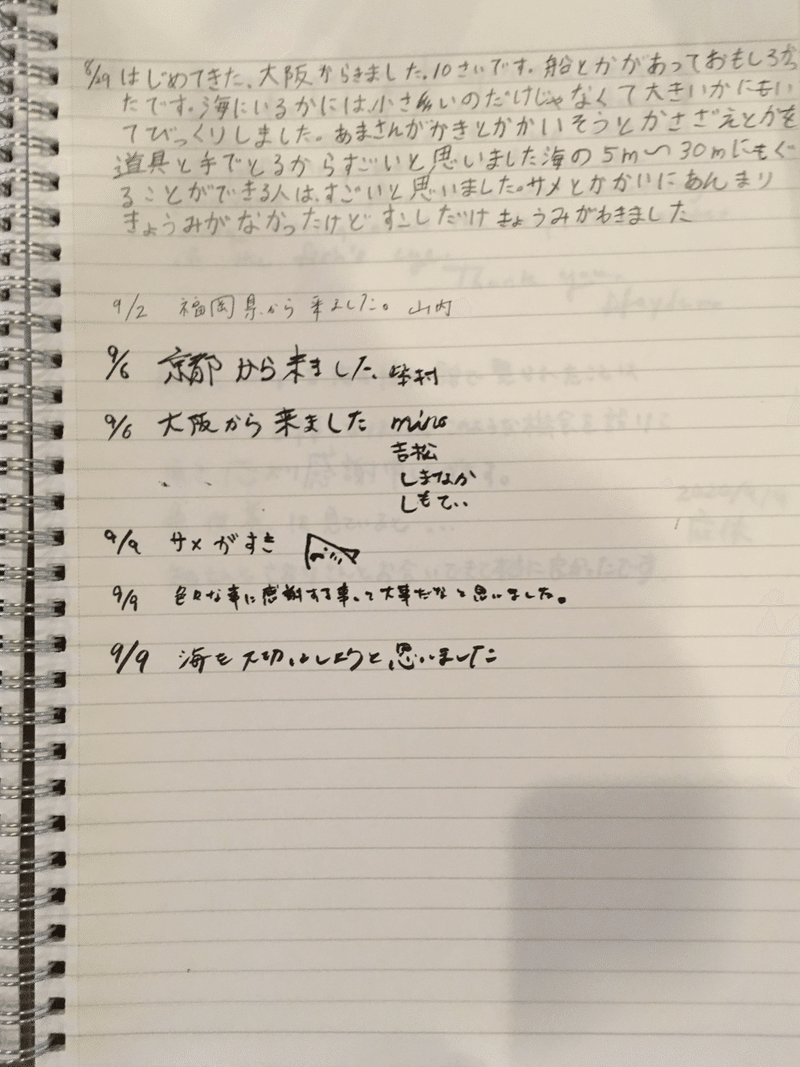 8/29 はじめてきた、大阪からきました。10さいです。船とかがあっておもしろかっ
たです。海にいるかには小さいのだけじゃなくて大きいかにもい
てびっくりしました。あまさんがかきとかかいそうとかさざえとかを
道具と手でとるからすごいと思いました海の5m〜30mにもぐ
ることができる人は、すごいと思いました。サメとかかいにあんまり
きょうみがなかったけどすこしだけきょうみがわきました
9/2 福岡県から来ました。山内
9/6 京都から来ました、柴村
9/6 大阪から来ました mino
吉松
しまなか
しもで
9/9 サメがすき
9/9 色々な事に感謝する事って大事だなと思いました。
9/9 海を大切にしようと思いました